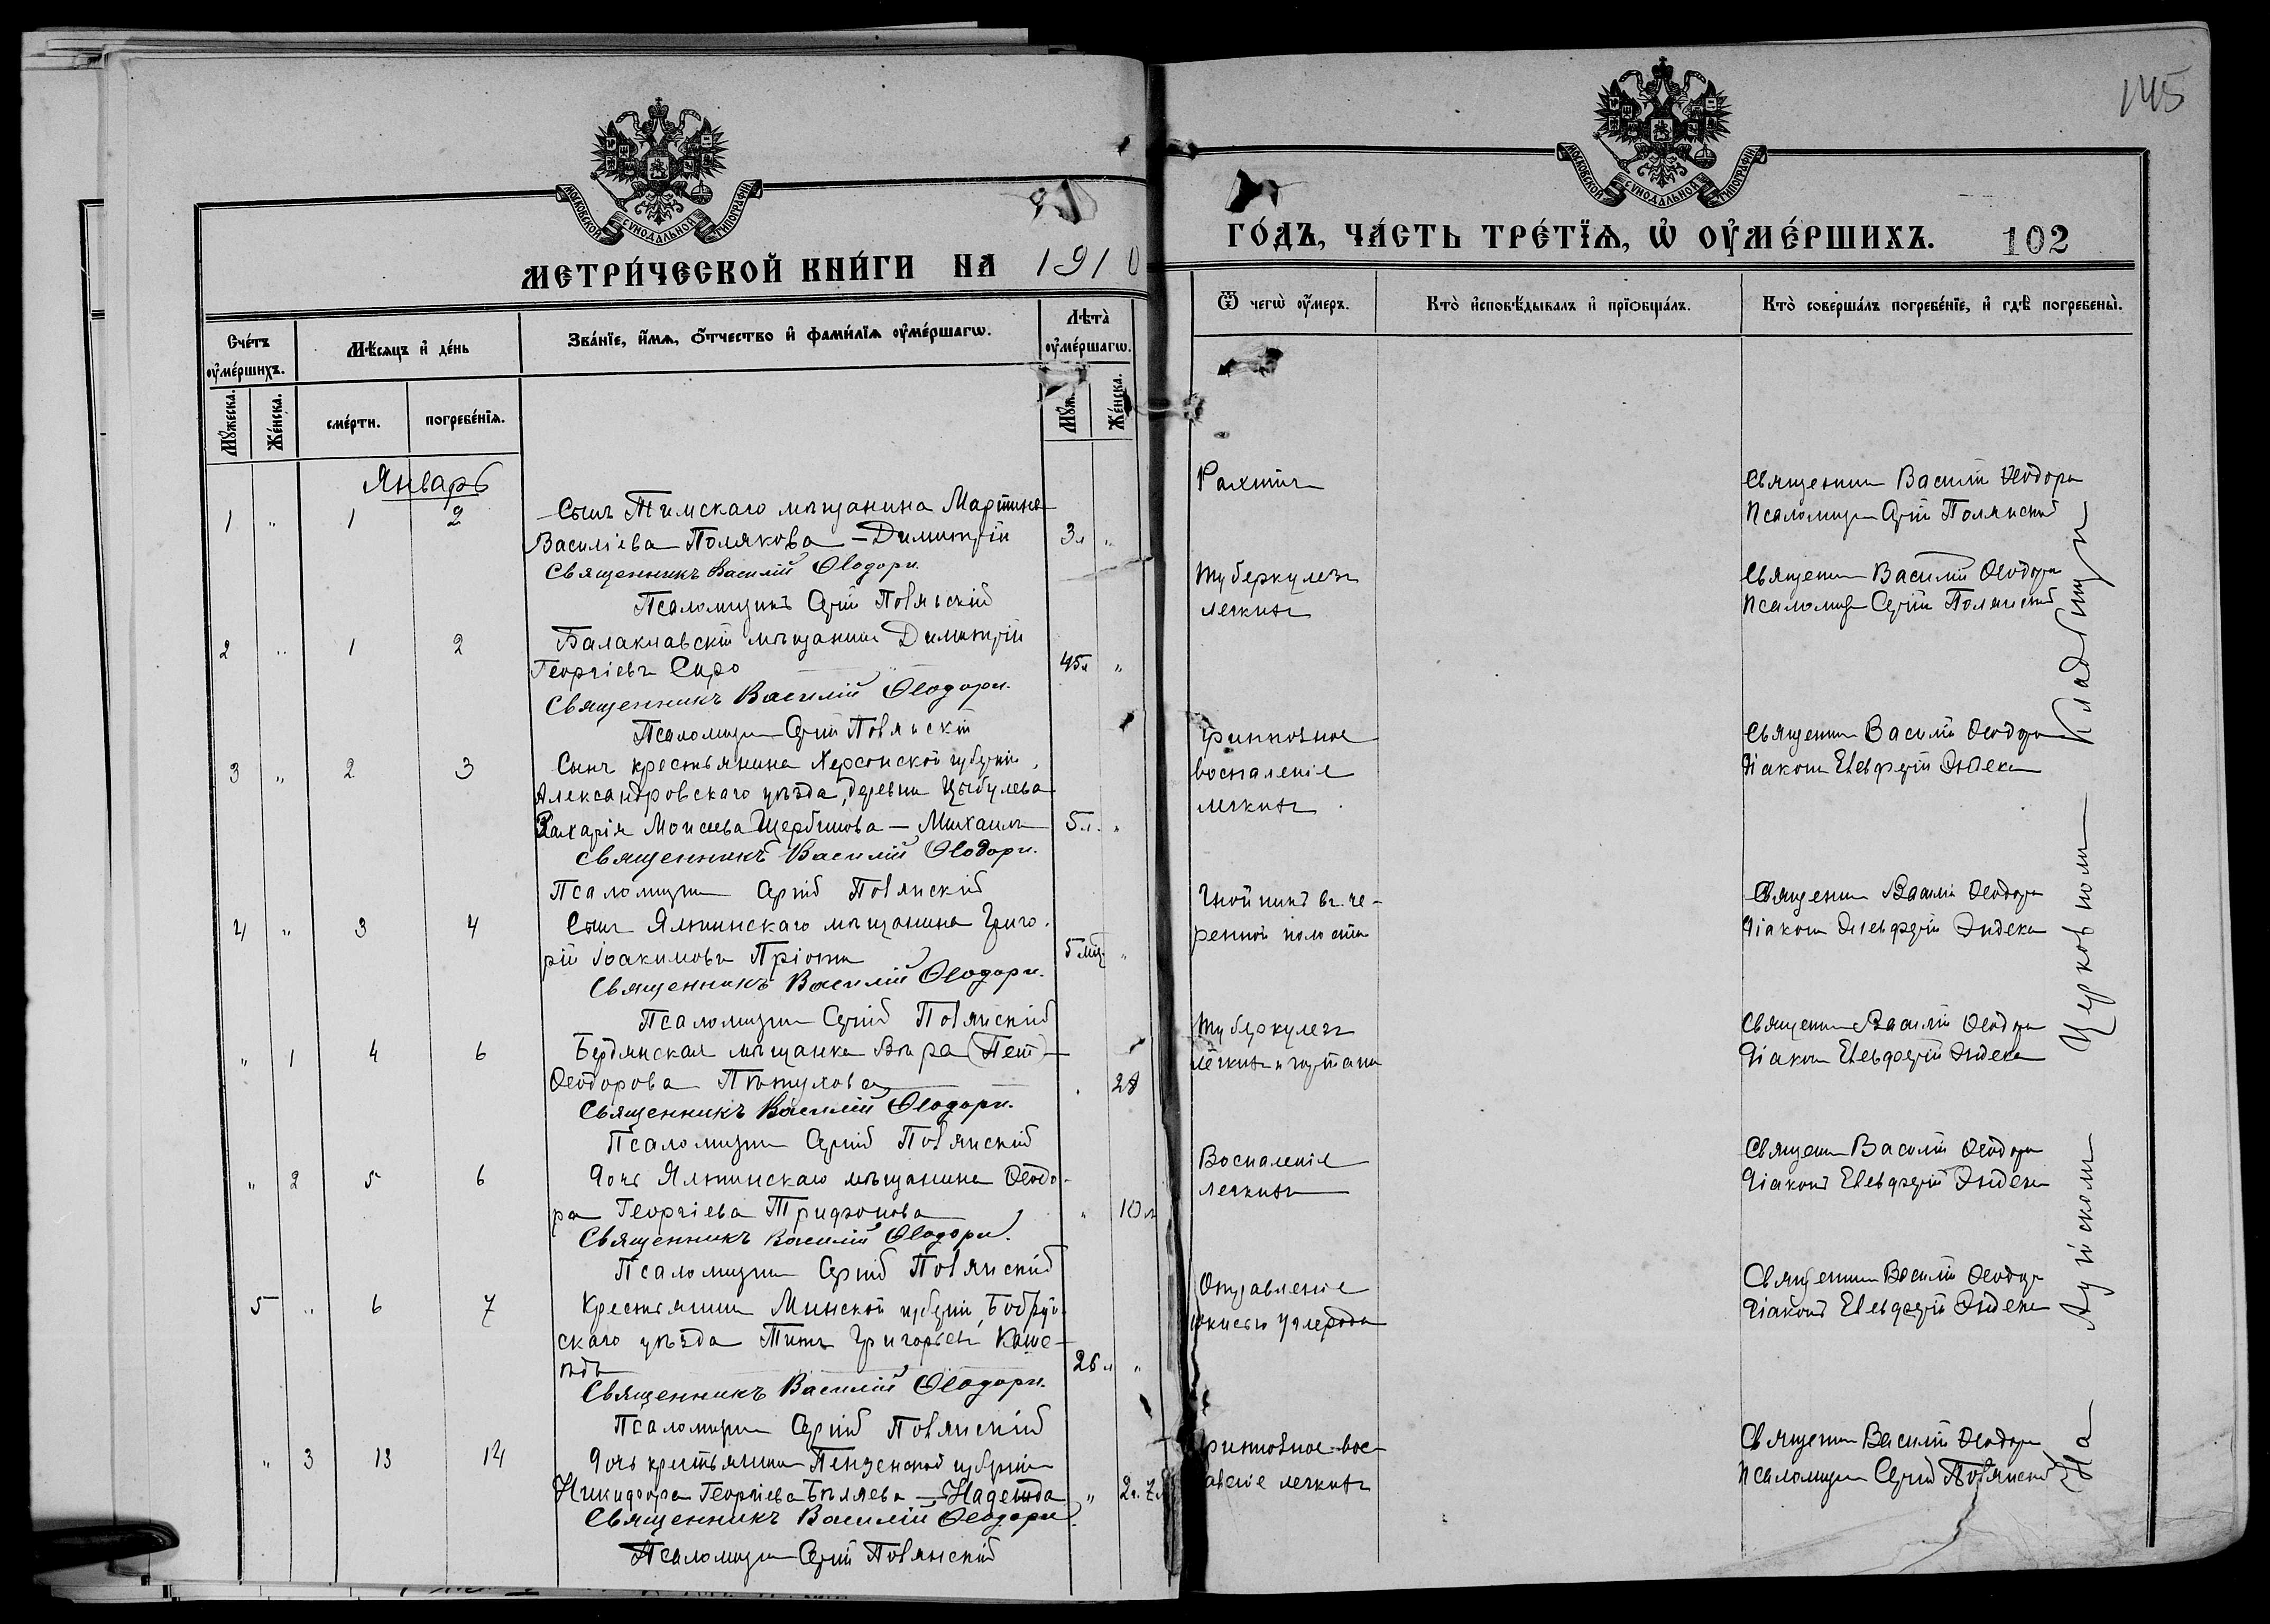 145
МОСКОВСКОЙ СУНОДАЛЬНОЙ ТИПОГРАФІИ
МОСКОВСКОЙ СУНОДАЛЬНОЙ ТИПОГРАФІИ
МЕТРИ́ЧЕСКОЙ КНИ́ГИ НА 1910
ГО́ДЪ, ЧА́СТЬ ТРЕ́ТЇѦ, Ѡ҆ ОУ҆МЕ́РШИХЪ. 102
Сче́тъ оу҆ме́ршихъ.
Мѣ́сяцъ и҆ де́нь
Зва́нїе, и҆́мѧ, ѻ҆́тчество и҆ фами́лїѧ оу҆ме́ршагѡ.
Лѣта̀ оу҆ме́ршагѡ.
Ѿ чегѡ̀ оу҆́меръ.
Кто̀ и҆сповѣ́дывалъ и҆ прїѻбща́лъ.
Кто̀ соверша́лъ погребе́нїе, и҆ гдѣ̀ погребены̀.
Мꙋ́жеска.
Же́нска.
сме́рти.
погребе́нїѧ.
Мꙋж
Же́нска.
Январь
1 " 1 2
Сынъ Тимскаго мѣщанина Мартина
Василіева Полякова — Димитрій 3л "
Священникъ Василій Ѳеодори.
Псаломщикъ Сергій Полянскій
Рахитъ
Священникъ Василій Ѳеодори
Псаломщикъ Сергій Полянскій
2 " 1 2
Балаклавскій мѣщанинъ Димитрій
Георгіевъ Сиро 45л "
Священникъ Василій Ѳеодори.
Псаломщикъ Сергій Полянскій
туберкулезъ
легкихъ
Священникъ Василій Ѳеодори
Псаломщикъ Сергій Полянскій
3 " 2 3
Сынъ крестьянина Херсонской губерніи,
Александровскаго уѣзда, деревни Цыбулева
Захарія Моисеева Щербинова — Михаилъ 5л. "
Священникъ Василій Ѳеодори.
Псаломщикъ Сергій Полянскій
воспаленіе
легкихъ
Священникъ Василій Ѳеодори
Діаконъ Елевферій Эндека
4 " 3 4
Сынъ Ялтинскаго мѣщанина Григо-
рій Іоакимовъ 5 мѣс. "
Священникъ Василій Ѳеодори.
Псаломщикъ Сергій Полянскій
Гнойникъ въ че-
репной полости
Священникъ Василій Ѳеодори
Діаконъ Елевферій Эндека
" 1 4 6
Бердянская мѣщанка Вѣра
Ѳеодорова Пѣтухова " 28
Священникъ Василій Ѳеодори.
Псаломщикъ Сергій Полянскій
туберкулезъ
легкихъ и гортани
Священникъ Василій Ѳеодори
Діаконъ Елевферій Эндека
" 2 5 6
Дочь Ялтинскаго мѣщанина Ѳеодо-
ра Георгіева Трифонова " 10
Священникъ Василій Ѳеодори.
Псаломщикъ Сергій Полянскій
Воспаленіе
легкихъ
Священникъ Василій Ѳеодори
Діаконъ Елевферій Эндека
5 " 6 7
Крестьянинъ Минской губерніи, Бобруй-
скаго уѣзда Титъ Григорьевъ 26л "
Священникъ Василій Ѳеодори.
Псаломщикъ Сергій Полянскій
Отравленіе
окисью углерода
Священникъ Василій Ѳеодори
Діаконъ Елевферій Эндека
" 3 13 14
Дочь крестьянина Пензенской губерніи
Никифора Георгіева Бѣляева — Надежда "
Священникъ Василій Ѳеодори.
Псаломщикъ Сергій Полянскій
легкихъ
Священникъ Василій Ѳеодори
Псаломщикъ Сергій Полянскій
На Аутскомъ Церковномъ Кладбищѣ